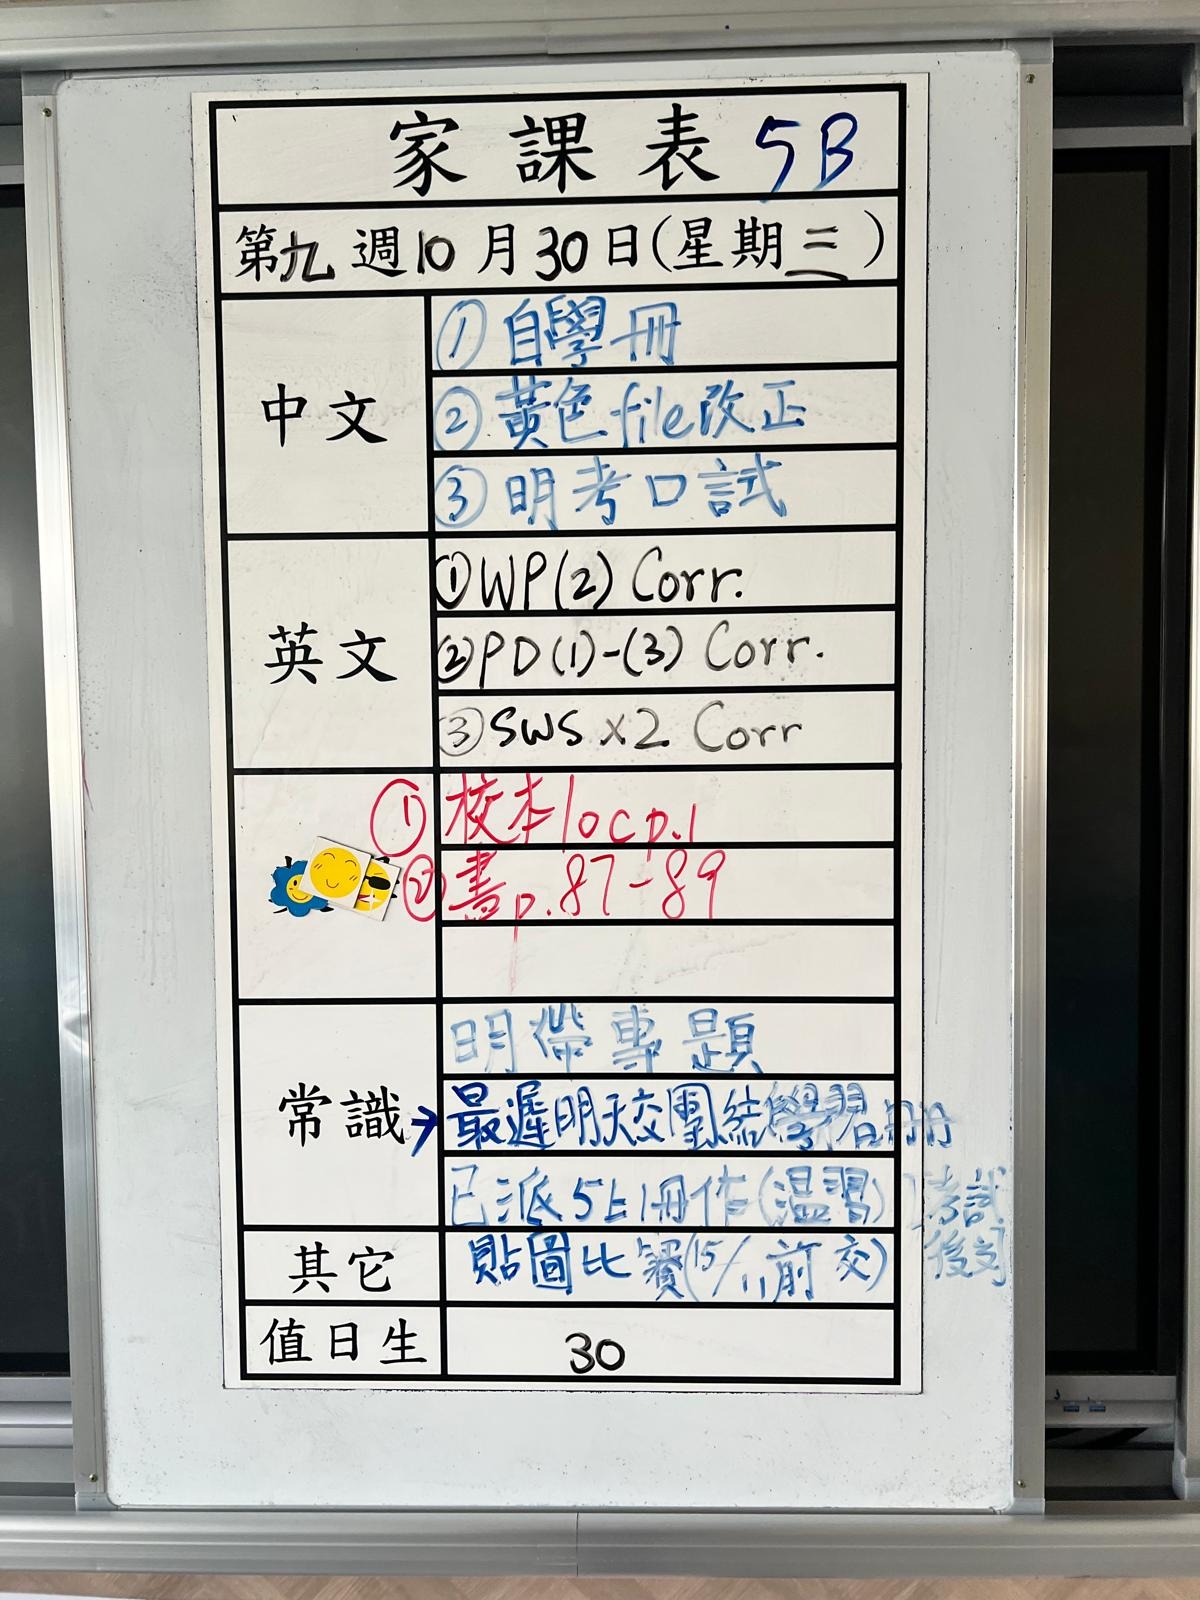 家課表 5B
第九週10月30日(星期三)
中文
① 自學冊
② 黃色file改正
③ 明考口試
英文
① WP(2) Corr.
② PD(1)-(3) Corr.
③ SWS x2 Corr
① 校本loc p.1
② 書p.87-89
常識
明帶專題
→最遲明天交團結學習冊
已派5上1冊作(溫習)[考試後交]
其它
貼圖比賽(15/11前交)
值日生
30